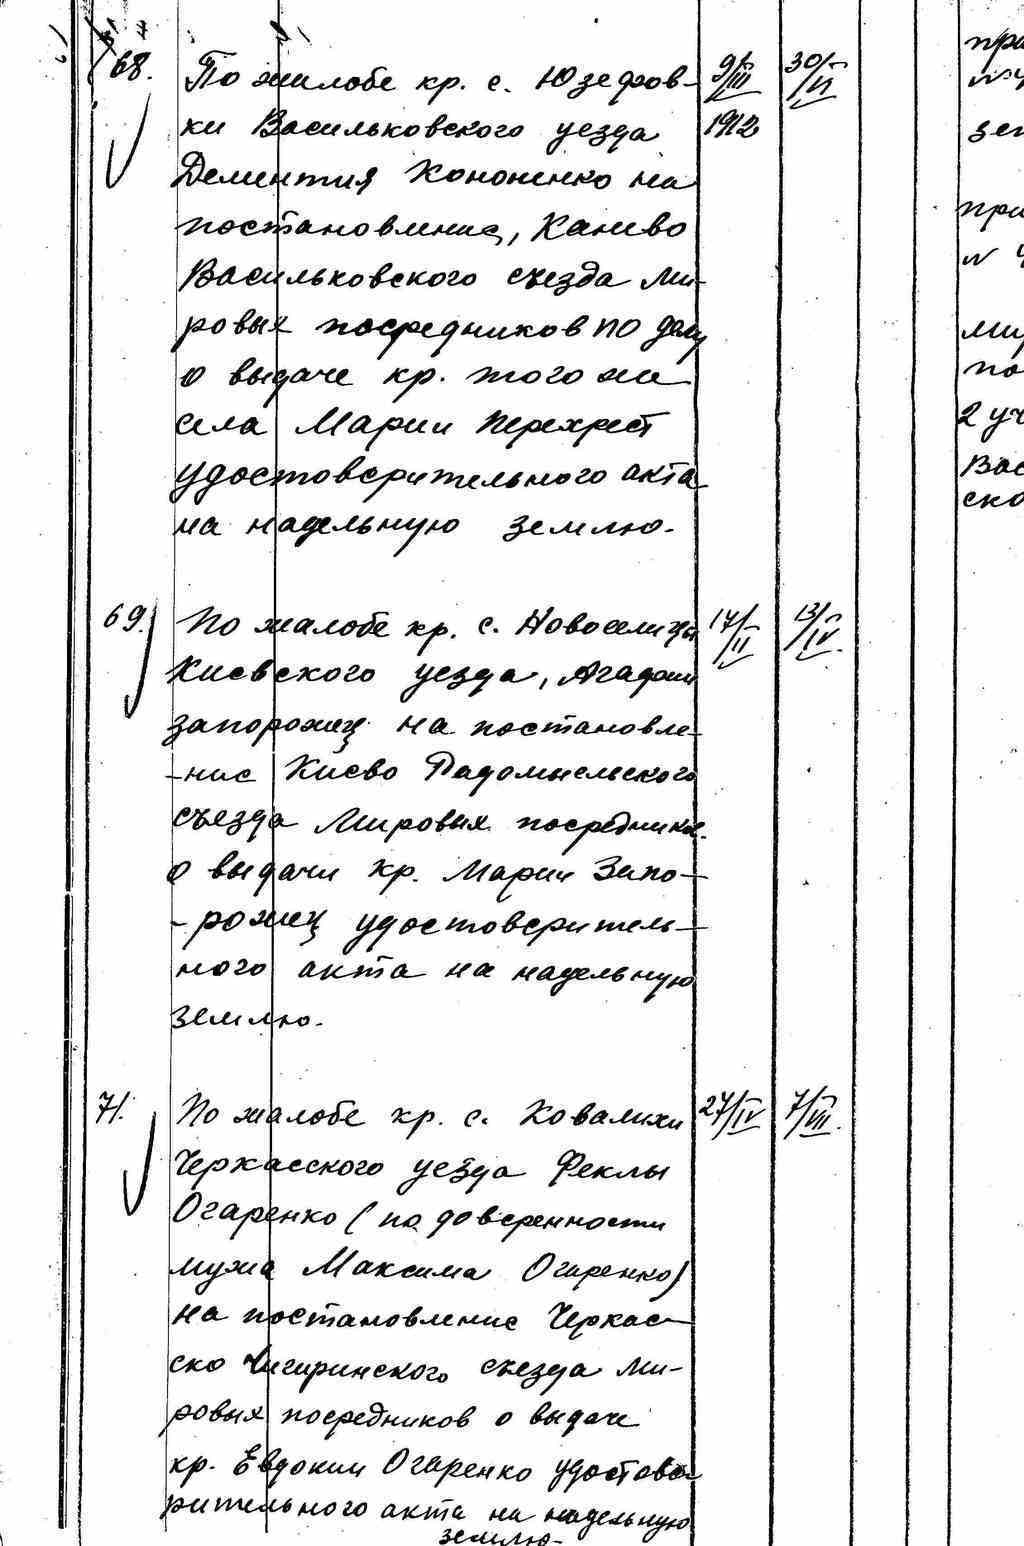 68. По жилобе кр. с. Юзефов- 9/III 30/VI
ки Васильковского уезда 1912
Дементия Кононенко на
постановление, Канево
Васильковского съезда ми-
ровых посредников по делу
о выдаче кр. того же
села Марии Перехрест
удостоверительного акта
на надельную землю.
69. По жалобе кр. с. Новоселицы 17/II 13/IV.
Киевского уезда, Агафии
Запорожец на постановле-
-ние Киево Радомысльского
съезда Мировых посредников.
о выдачи кр. Марии Запо-
-рожец удостоверитель-
ного акта на надельную
землю.
71. По жалобе кр. с. Ковалихи 27/IV 7/VIII.
Черкасского уезда Феклы
Огаренко (по доверенности
мужа Максима Огаренко)
на постановление Черкас-
ско Чигиринского съезда ми-
ровых посредников о выдаче
кр. Евдокии Огаренко удостове-
рительного акта на надельную
землю-
при
зем
при
№ 4
мир
по
2 уч
Вас
ско